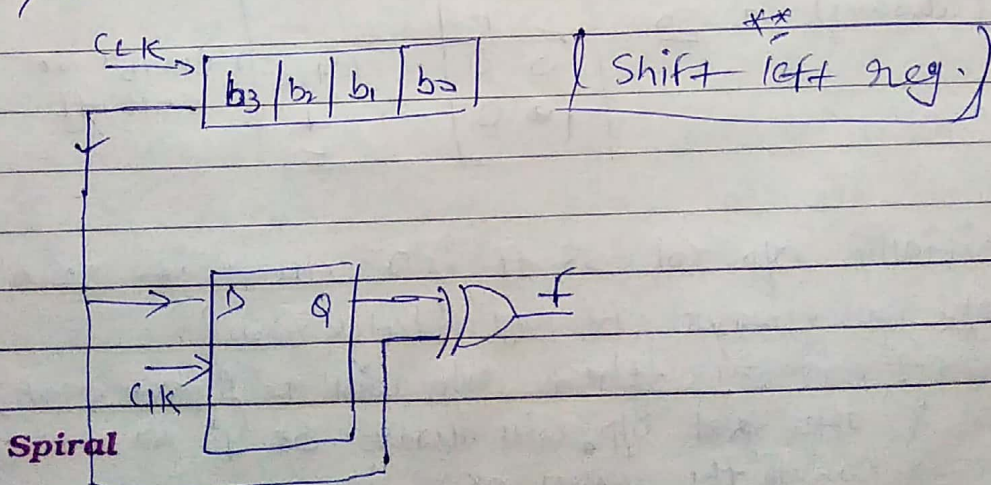 CLK
b3 | b2 | b1 | b0
**
Shift left reg.
D Q f
Clk
Spiral